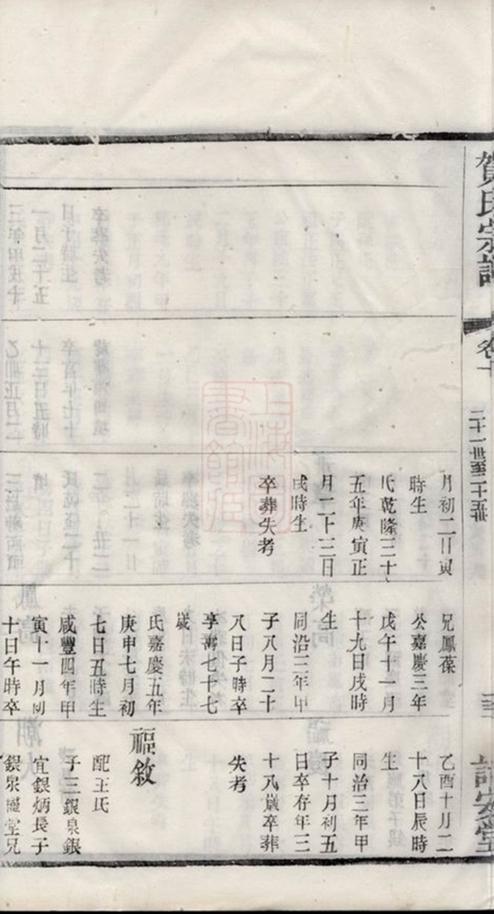 賀氏宗譜
卷十
二十一世至二十五世
月初二日寅
時生
氏乾隆三十
五年庚寅正
月二十三日
戌時生
卒葬失考
兄鳳葆
公嘉慶三年
戊午十一月
十九日戌時
生
同治三年甲
子八月二十
八日子時卒
享壽七十七
歲
氏嘉慶五年
庚申七月初
七日丑時生
咸豐四年甲
寅十一月初
十日午時卒
乙酉十月二
十八日辰時
生
同治三年甲
子十月初五
日卒存年三
十八歲卒葬
失考
福敘
配王氏
子三銀泉銀
宜銀炳長子
銀泉繼堂兄